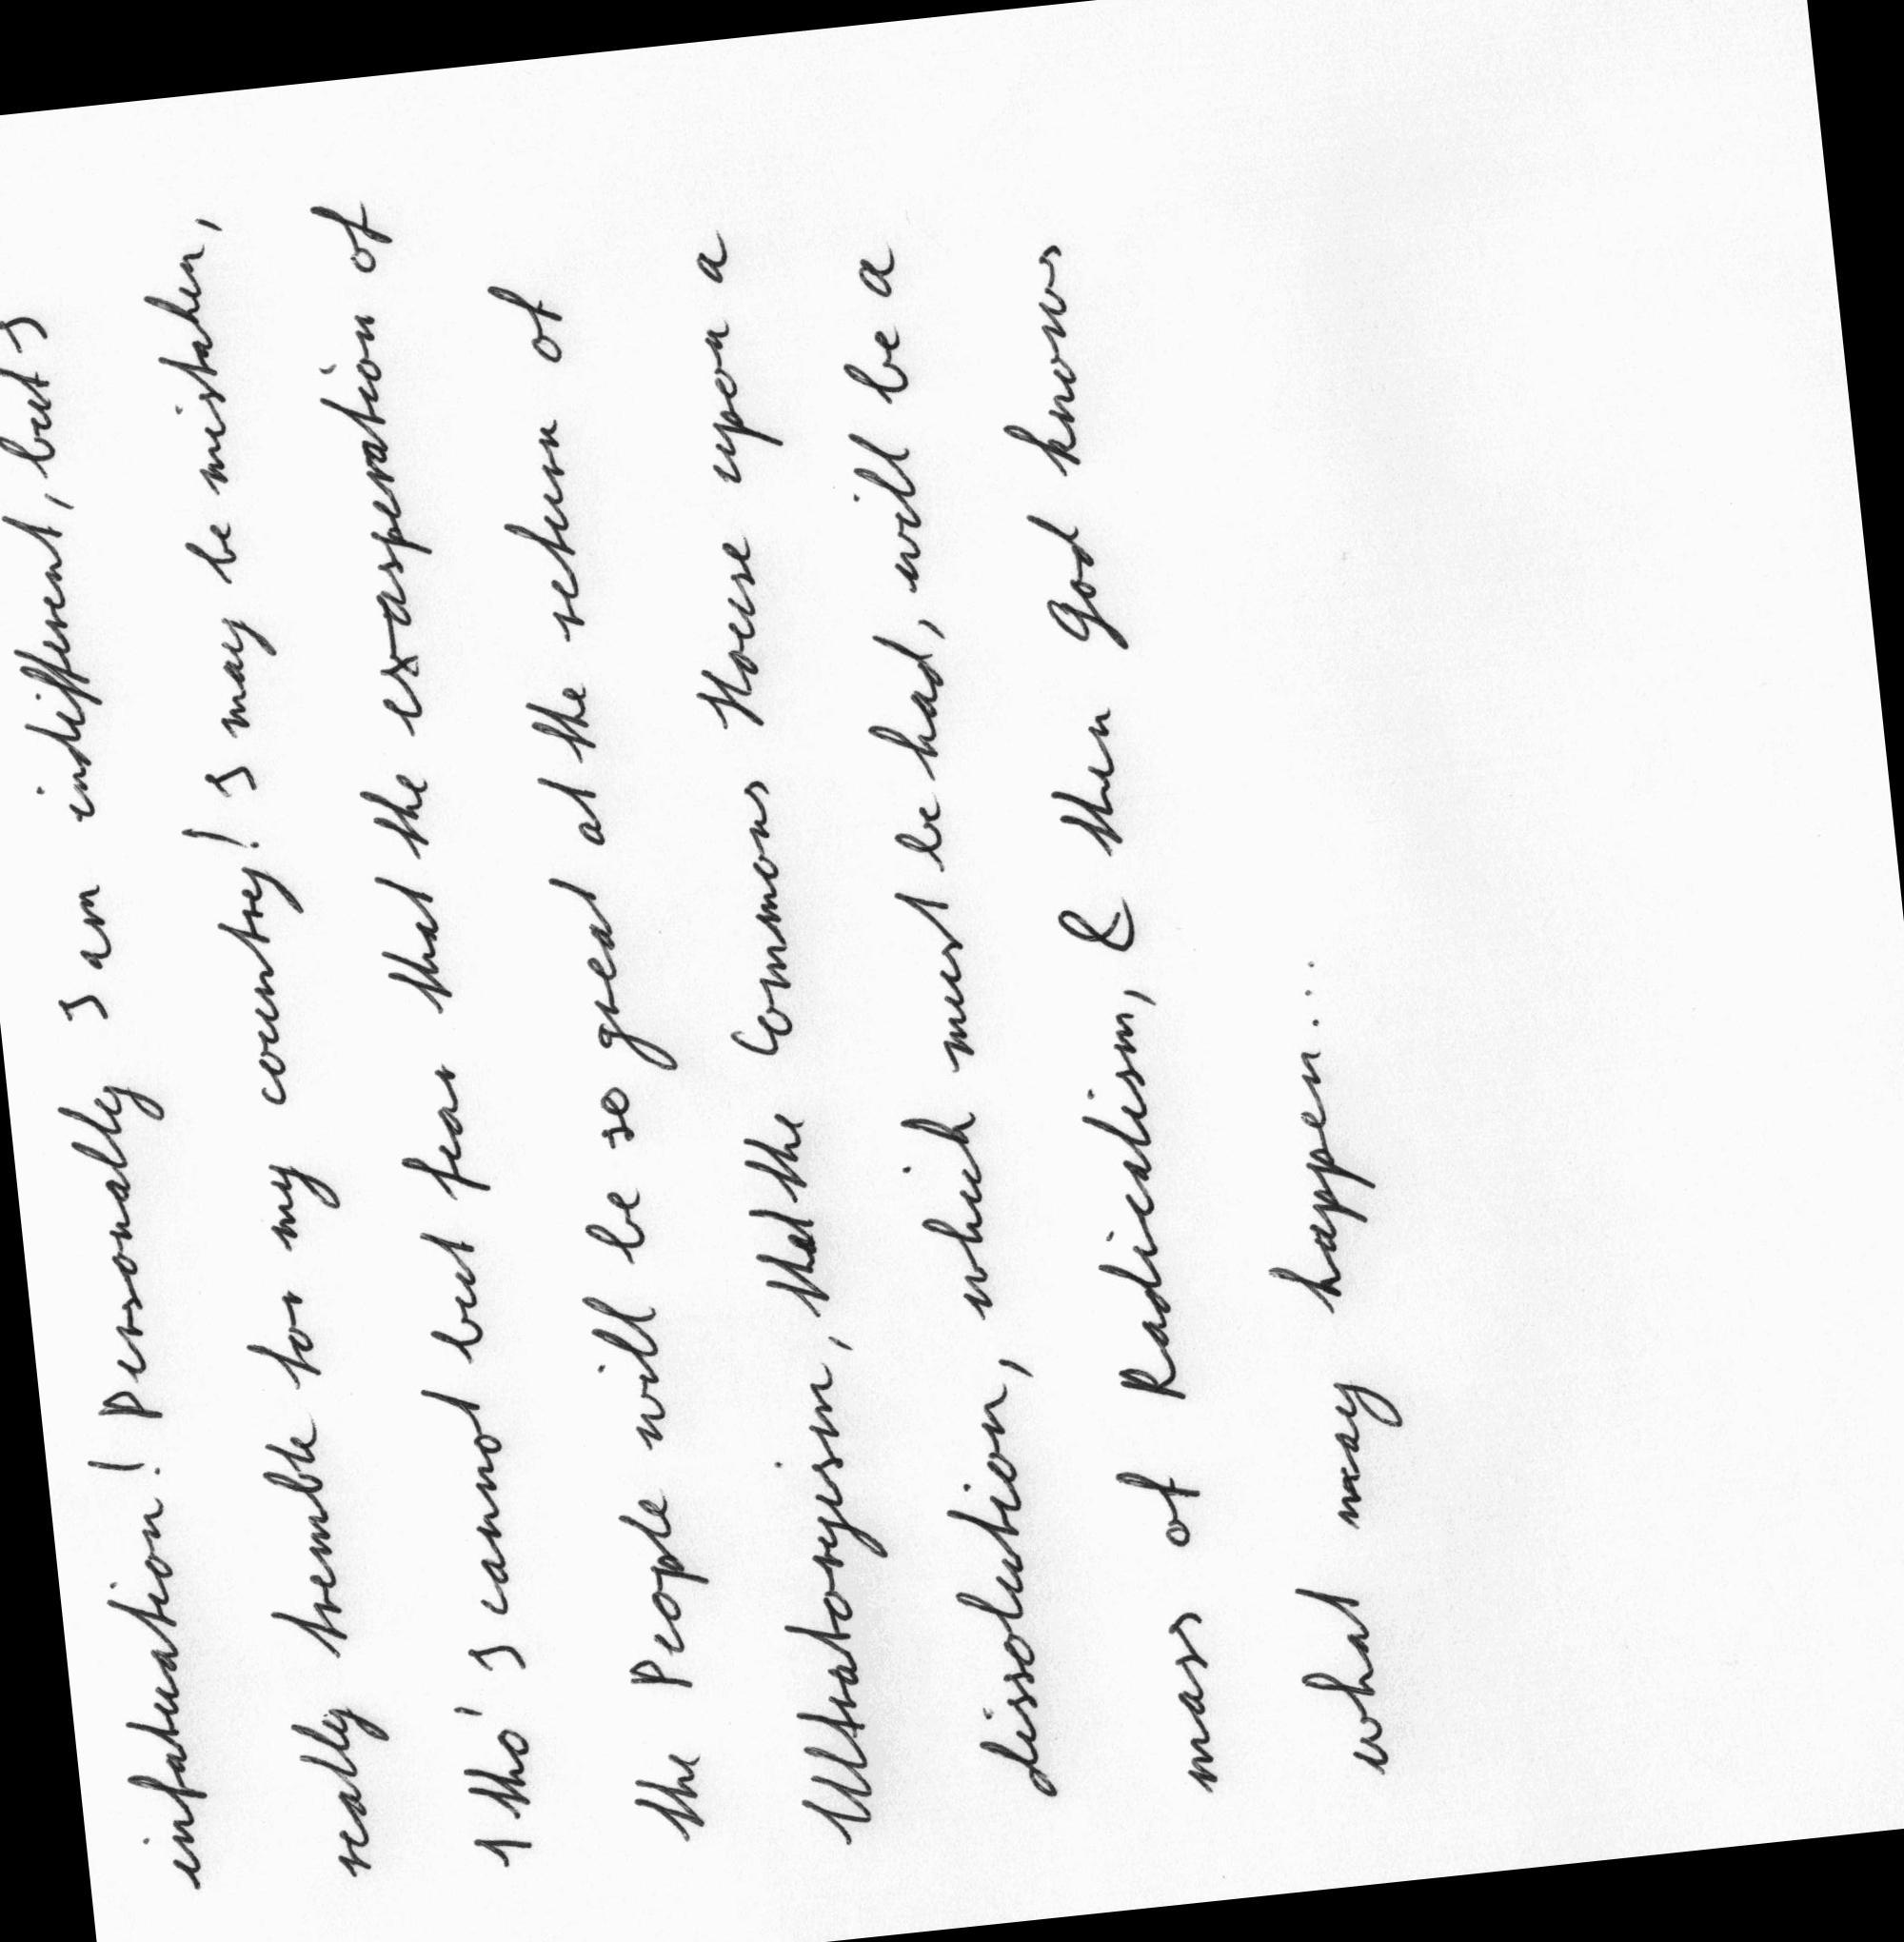 infatuation! Personally I am indifferent, but I
really tremble for my country! I may be mistaken,
tho' I cannot but fear that the exasperation of
the People will be so great at the return of
Ultratoryism, that the Commons House upon a
dissolution, which must be had, will be a
mass of Radicalism, & then God knows
what may happen...